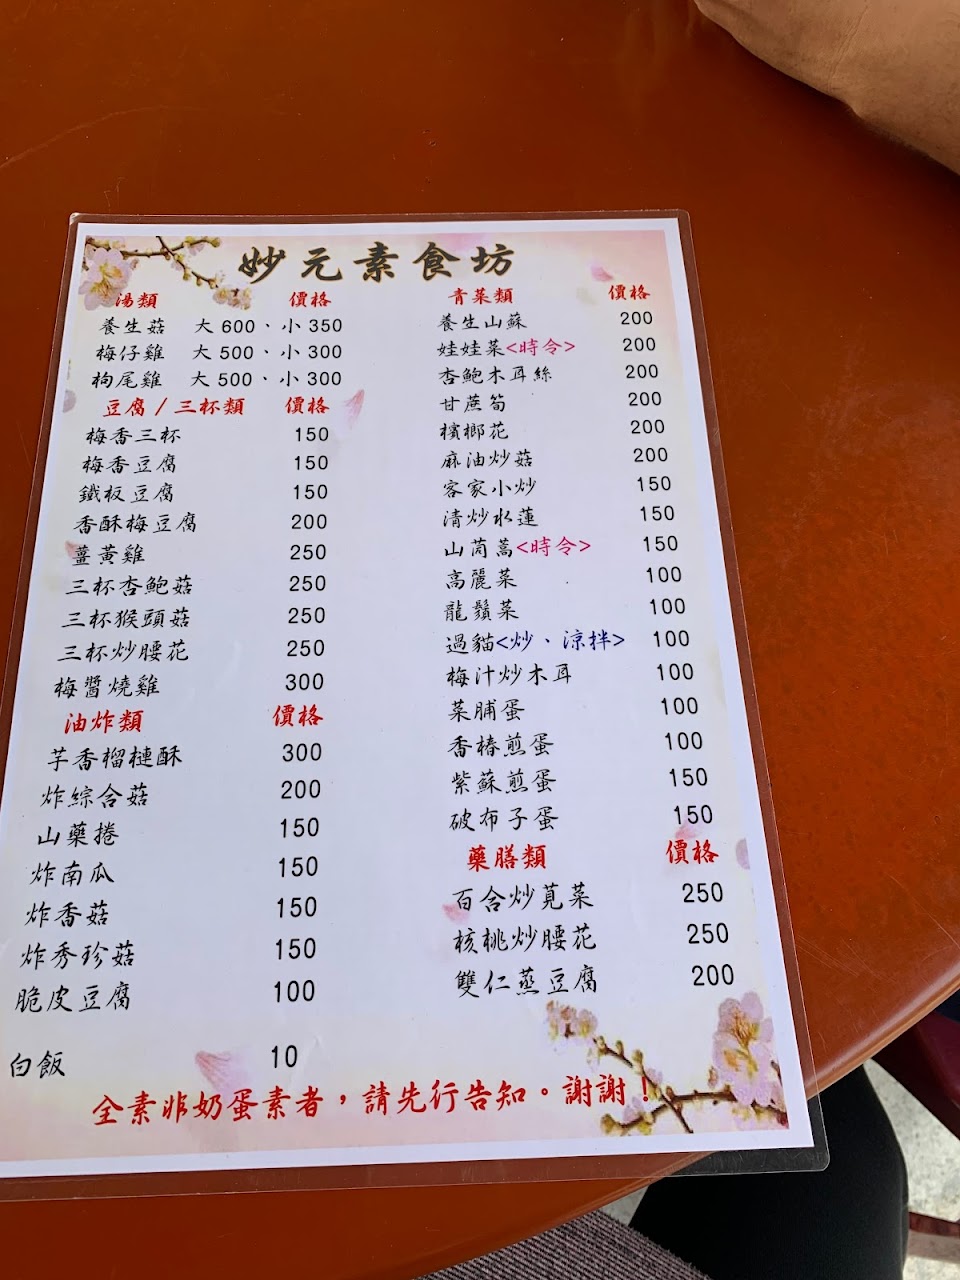 妙元素食坊
湯類 價格
養生菇 大600、小350
梅仔雞 大500、小300
枸尾雞 大500、小300
豆腐/三杯類 價格
梅香三杯 150
梅香豆腐 150
鐵板豆腐 150
香酥梅豆腐 200
薑黃雞 250
三杯杏鮑菇 250
三杯猴頭菇 250
三杯炒腰花 250
梅醬燒雞 300
油炸類 價格
芋香榴槤酥 300
炸綜合菇 200
山藥捲 150
炸南瓜 150
炸香菇 150
炸秀珍菇 150
脆皮豆腐 100
白飯 10
青菜類 價格
養生山蘇 200
娃娃菜<時令> 200
杏鮑木耳絲 200
甘蔗筍 200
檳榔花 200
麻油炒菇 200
客家小炒 150
清炒水蓮 150
山茼蒿<時令> 150
高麗菜 100
龍鬚菜 100
過貓<炒、涼拌> 100
梅汁炒木耳 100
菜脯蛋 100
香椿煎蛋 100
紫蘇煎蛋 150
破布子蛋 150
藥膳類 價格
百合炒莧菜 250
核桃炒腰花 250
雙仁蒸豆腐 200
全素非奶蛋素者，請先行告知。謝謝！